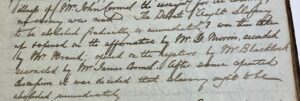 of Mr. John Connel the essayist for the
no essay was read. The Debate "Ought slavery
to be abolished Radically or immediately" was then taken
up opened on the affirmative by Mr. G. Morris, seconded
by Mr. Brand, opened on the negative by Mr. Blacklock
seconded by Mr. James Connel. After some spirited
discussion it was decided that slavery ought to be
abolished immediately